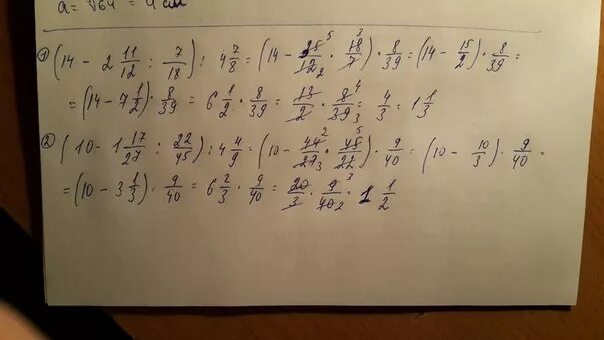 a = √64 = 4 см
① (14 - 2 11/12 : 7/18) : 4 7/8 = (14 - 35/12 · 18/7) · 8/39 = (14 - 15/2) · 8/39 =
= (14 - 7 1/2) · 8/39 = 6 1/2 · 8/39 = 13/2 · 8/39 = 4/3 = 1 1/3
② (10 - 1 17/27 : 22/45) : 4 4/9 = (10 - 44/27 · 45/22) · 9/40 = (10 - 10/3) · 9/40 =
= (10 - 3 1/3) · 9/40 = 6 2/3 · 9/40 = 20/3 · 9/40 = 1 1/2